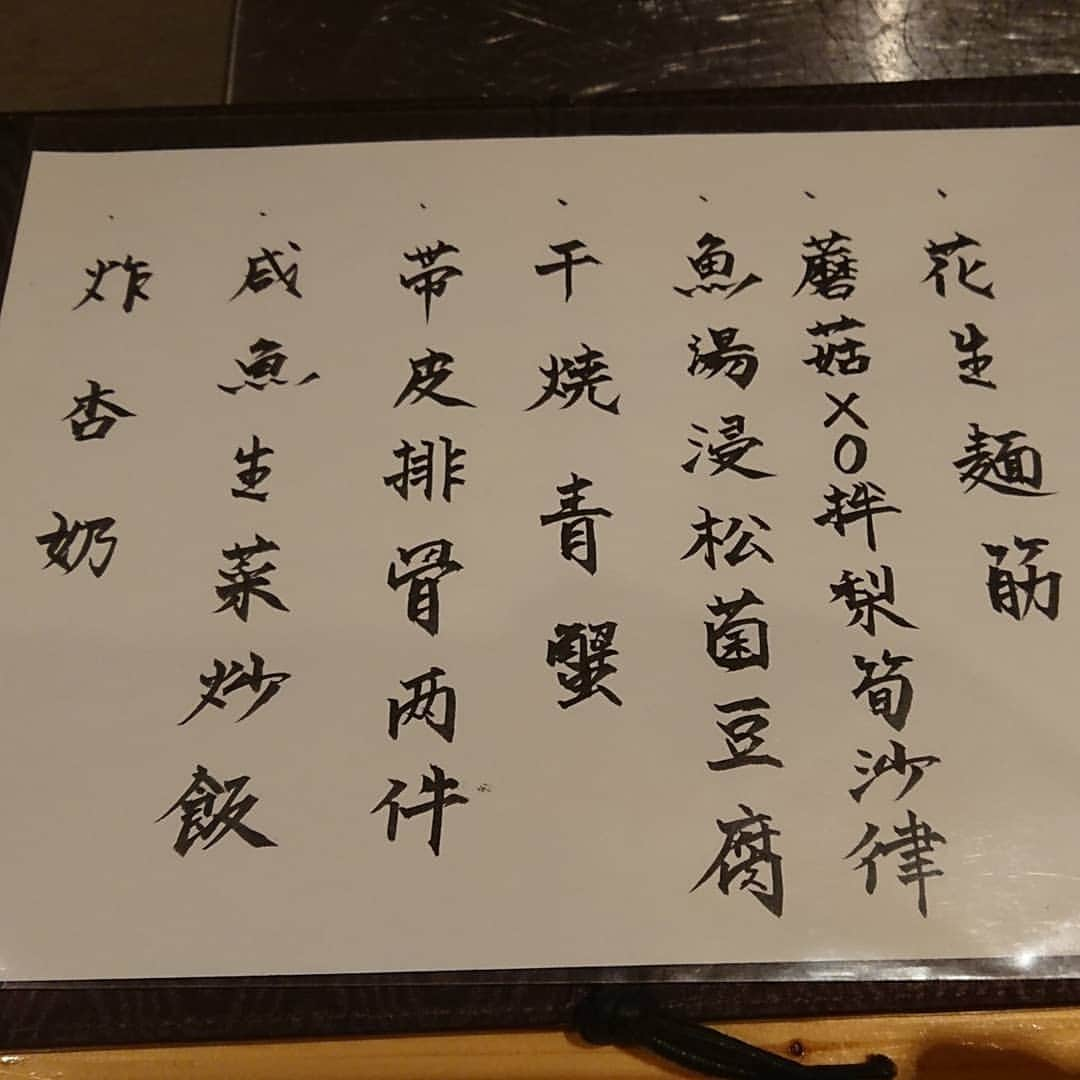 、花生麵筋
、蘑菇XO拌梨筍沙律
、魚湯浸松菌豆腐
、干燒青蟹
、带皮排骨两件
、咸魚生菜炒飯
、炸杏奶